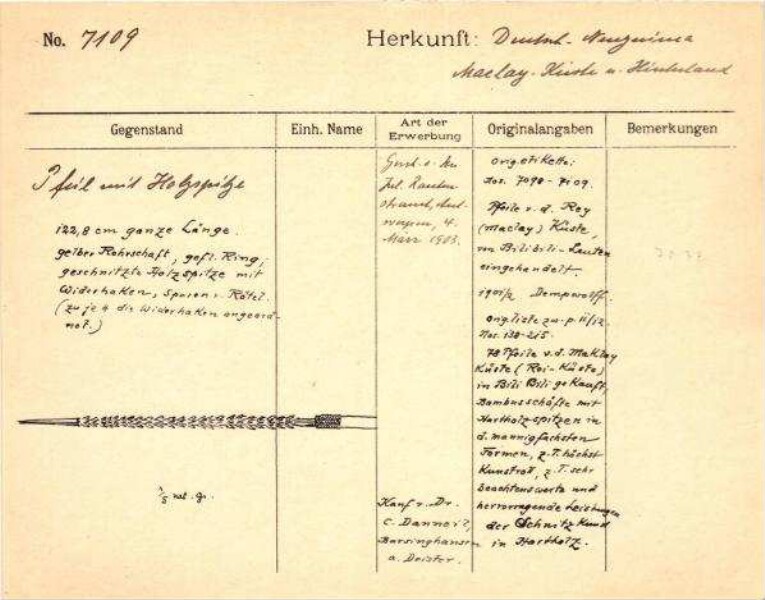 No. 7109
Herkunft: Deutsch-Neuguinea
Maclay-Küste u. Hinterland
Gegenstand
Einh. Name
Art der Erwerbung
Originalangaben
Bemerkungen
Pfeil mit Holzspitze
122,8 cm ganze Länge.
gelber Rohrschaft, gefl. Ring,
geschnitzte Holzspitze mit
Widerhaken, Spuren v. Rötel.
(zu je 4 die Widerhaken angeord-
net.)
1/5 nat. gr.
Jul. Rauten-
strauch, Ant-
werpen, 4.
März 1903.
Kauf v. Dr.
C. Danneil,
Barsinghausen
a. Deister.
Orig. etikette:
Nos. 7098-7109.
Pfeile v. d. Rey
(Maclay) Küste,
von Bilibili-Leuten
eingehandelt.
Dempwolff.
Orig. liste
Nos. 138-215.
78 Pfeile v. d. Maklay
Küste (Rei-Küste)
in Bili Bili gekauft,
Bambusschäfte mit
Hartholzspitzen in
d. mannigfachsten
Formen, z.T. höchst
kunstvoll, z.T. sehr
beachtenswerte und
hervorragende Leistungen
der Schnitzkunst
in Hartholz.